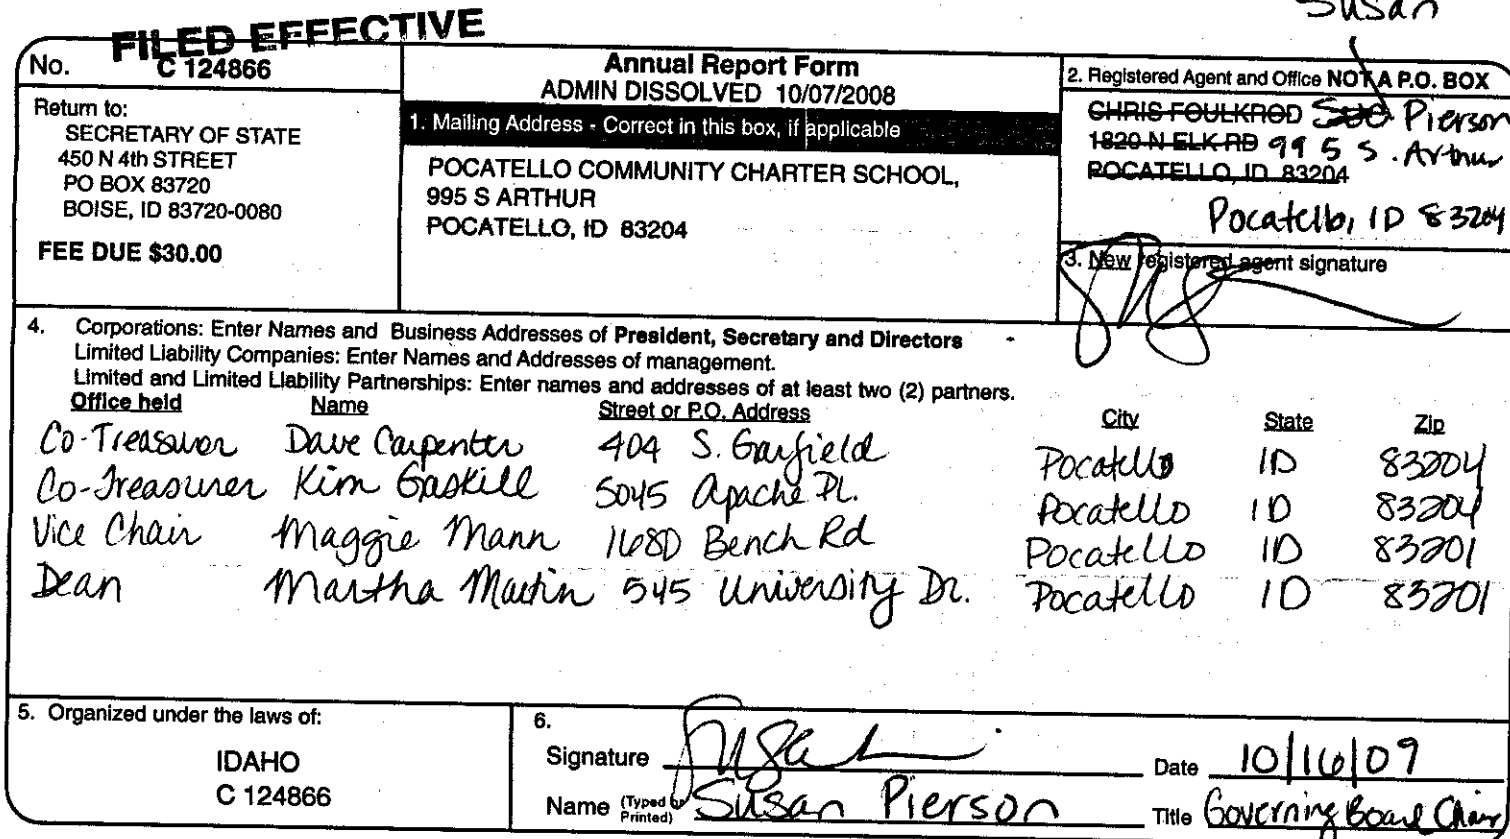 Susan
FILED EFFECTIVE
No. C 124866
Return to:
SECRETARY OF STATE
450 N 4th STREET
PO BOX 83720
BOISE, ID 83720-0080
FEE DUE $30.00
Annual Report Form
ADMIN DISSOLVED 10/07/2008
1. Mailing Address - Correct in this box, if applicable
POCATELLO COMMUNITY CHARTER SCHOOL,
995 S ARTHUR
POCATELLO, ID 83204
2. Registered Agent and Office NOT A P.O. BOX
CHRIS FOULKROD Sue Pierson
1820 N ELK RD 995 S. Arthur
POCATELLO, ID 83204
Pocatello, ID 83204
3. New registered agent signature
4. Corporations: Enter Names and Business Addresses of President, Secretary and Directors
Limited Liability Companies: Enter Names and Addresses of management.
Limited and Limited Liability Partnerships: Enter names and addresses of at least two (2) partners.
Office held Name Street or P.O. Address City State Zip
Co-Treasurer Dave Carpenter 404 S. Garfield Pocatello ID 83204
Co-Treasurer Kim Gaskill 5045 Apache Pl. Pocatello ID 83204
Vice Chair Maggie Mann 1680 Bench Rd Pocatello ID 83201
Dean Martha Martin 545 University Dr. Pocatello ID 83201
5. Organized under the laws of:
IDAHO
C 124866
6.
Signature Date 10/16/09
Name (Typed or Printed) Susan Pierson Title Governing Board Chair